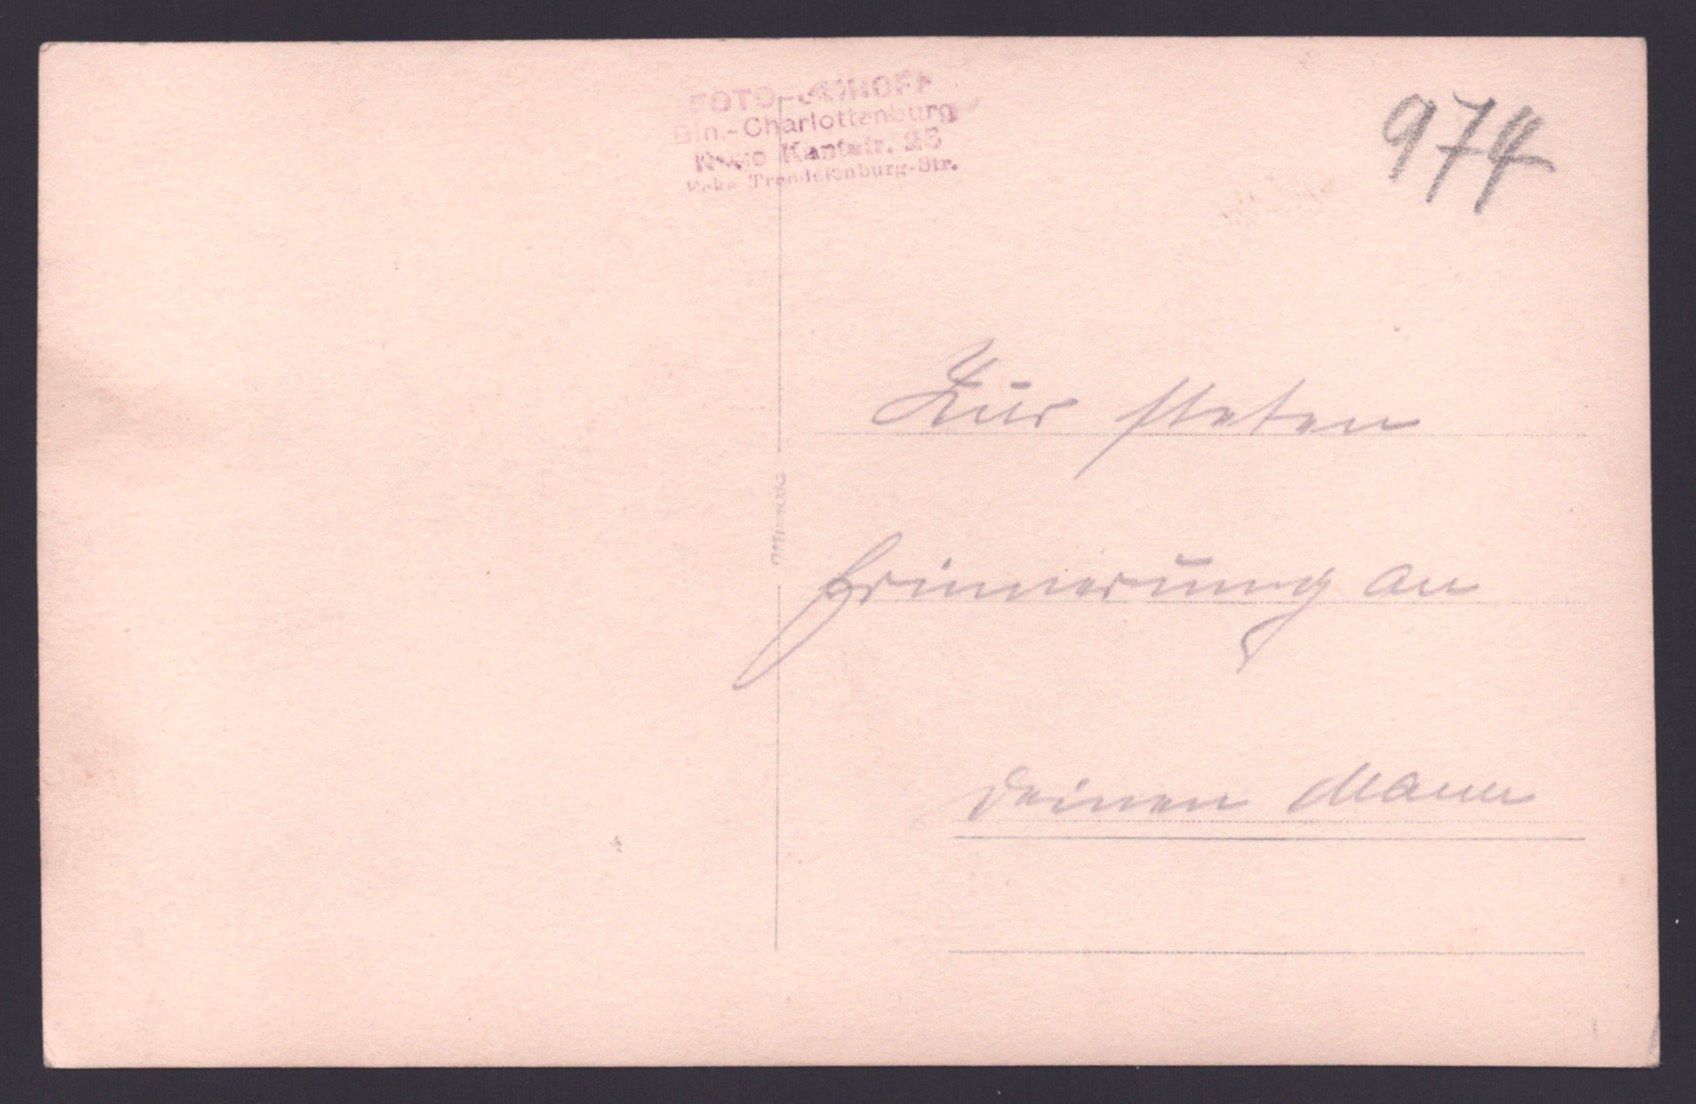 FOTO-
Bln.-Charlottenburg
Neue Kantstr. 25
Ecke Trendelenburg-Str.
974
Mimosa
Zur steten
Erinnerung an
deinen Mann